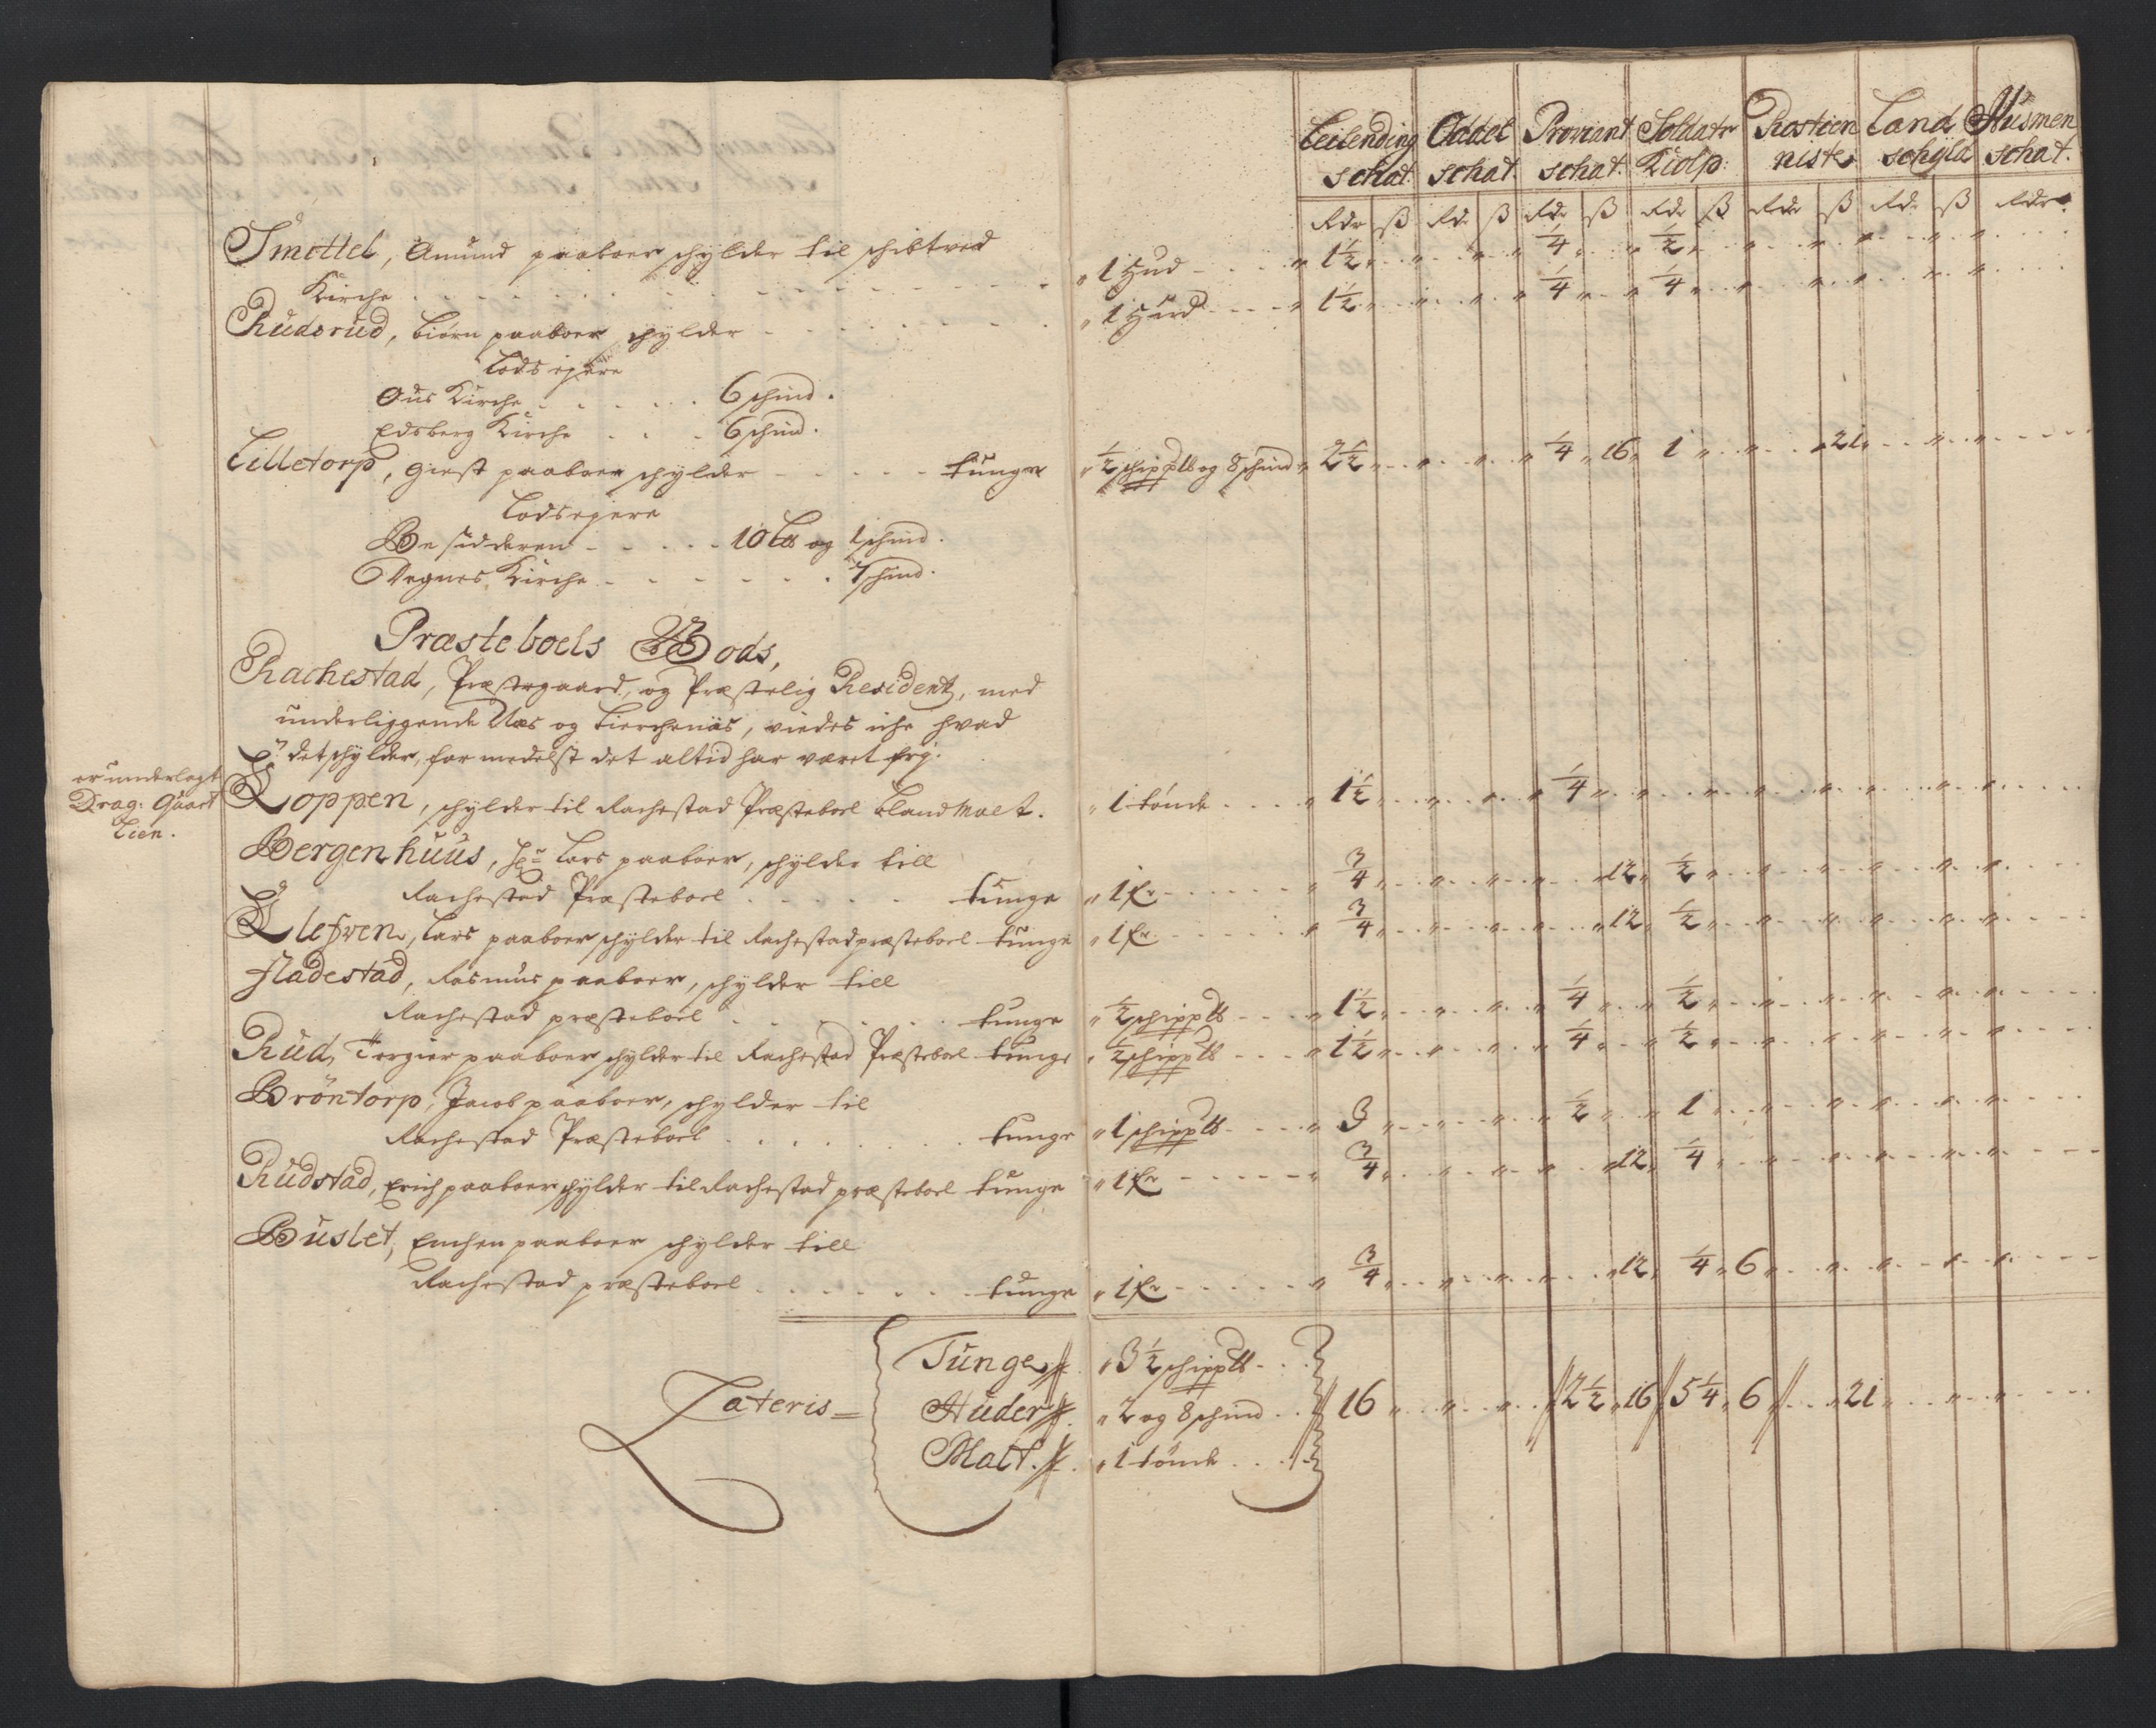 Leilending schat. Oddel schat. Proviant schat. Soldate Kiolp: Rostien niste Land schyld Husmen schat.
Rdr ß Rdr ß Rdr ß Rdr ß Rdr ß Rdr ß Rdr
Smottel, Amund paaboer schylder til schibtved
Kirche . . . . „ 1 Hud - - „ 1½ „ „ „ ¼ „ „ ½ „
Rudsrud, Biørn paaboer schylder - - - „ 1 Hud - - „ 1½ „ „ „ ¼ „ „ ¼ „
Lodsejere
Ous Kirche . . . . 6 schind.
Edsberg Kirche . . . 6 schind.
Lilletorp, Giest paaboer schylder - - - tunge „ ½ schipp℔ og 8 schind „ 2½ „ „ „ ¼ „ 16 „ 1 „ „ „ 21 „
Lodsejere
Besidderen - - - - 10 L℔ og 1 schind.
Degnes Kirche - - - - 7 schind.
Præsteboels Gods,
Rachestad, Præstegaard, og Præstelig Resident, med
underliggende Næs og Lierchenæs, viedes iche hvad
det schylder, formedelst det altid har været frj.
er underlagt
Drag: Quart
Lien.
Loppen, schylder til Rachestad Præsteboel blandMalt. „ 1 tønde . . . „ 1½ „ „ „ ¼ „
Bergenhuus, Lars paaboer, schylder till
Rachestad Præsteboel . . . . tunge „ 1 fr - - - „ ¾ „ „ „ 12 „ ½ „
Elefven, Lars paaboer schylder til Rachestad præsteboel tunge „ 1 fr - - - „ ¾ „ „ „ 12 „ ½ „
Fladestad, Rasmus paaboer, schylder till
Rachestad præsteboel . . . . tunge „ ½ schipp℔ - - „ 1½ „ „ „ ¼ „ „ ½ „
Rud, Torgier paaboer schylder til Rachestad Præsteboel tunge „ ½ schipp℔ - - „ 1½ „ „ „ ¼ „ „ ½ „
Brøntorp, Jacob paaboer, schylder til
Rachestad Præsteboel . . . . tunge „ 1 schipp℔ - - „ 3 „ „ „ ½ „ „ 1 „
Rudstad, Erich paaboer schylder til Rachestad præsteboel tunge „ 1 fr - - - „ ¾ „ „ „ 12 „ ¼ „
Buslet, Emchen paaboer schylder till
Rachestad præsteboel . . . . tunge „ 1 fr - - - „ ¾ „ „ „ 12 „ ¼ „ 6 „
Lateris = Tunge „ 3½ schipp℔ - -
Huder „ 2 og 8 schind . . 16 „ „ „ 2½ „ 16 5¼ „ 6 „ 21 „
Malt. „ 1 tønde . . .